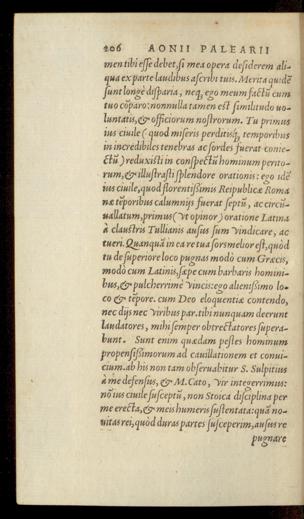 206 AONII PALEARII
men tibi esse debet, si mea opera desiderem ali-
qua ex parte laudibus ascribi tuis. Merita quidē
sunt longè disparia, neq; ego meum factū cum
tuo cōparo: nonnulla tamen est similitudo uo-
luntatis, & officiorum nostrorum. Tu primus
ius ciuile (quod miseris perditisq́; temporibus
in incredibiles tenebras ac sordes fuerat coniec-
ctū) reduxisti in conspectū hominum perito-
rum, & illustrasti splendore orationis: ego idē
ius ciuile, quod florentissimis Reipublicæ Roma
næ tēporibus calumnijs fuerat septū, ac circū-
uallatum, primus (vt opinor) oratione Latina
à claustris Tullianis ausus sum vindicare, ac
tueri. Quanquā in ea re tua sors melior est, quòd
tu de superiore loco pugnas modò cum Græcis,
modò cum Latinis, sæpe cum barbaris homini-
bus, & pulcherrimè vincis: ego alienissimo lo-
co & tēpore. cum Deo eloquentiæ contendo,
nec dijs nec viribus par. tibi nunquam deerunt
laudatores, mihi semper obtrectatores supera-
bunt. Sunt enim quædam pestes hominum
propensissimorum ad cauillationem et conui-
cium. ab his non tam obseruabitur S. Sulpitius
à me defensus, & M. Cato, vir integerrimus:
nō ius ciuile susceptū, non Stoica disciplina per
me erecta, & meis humeris sustentata: quā no-
uitas rei, quòd duras partes susceperim, ausus re
pugnare